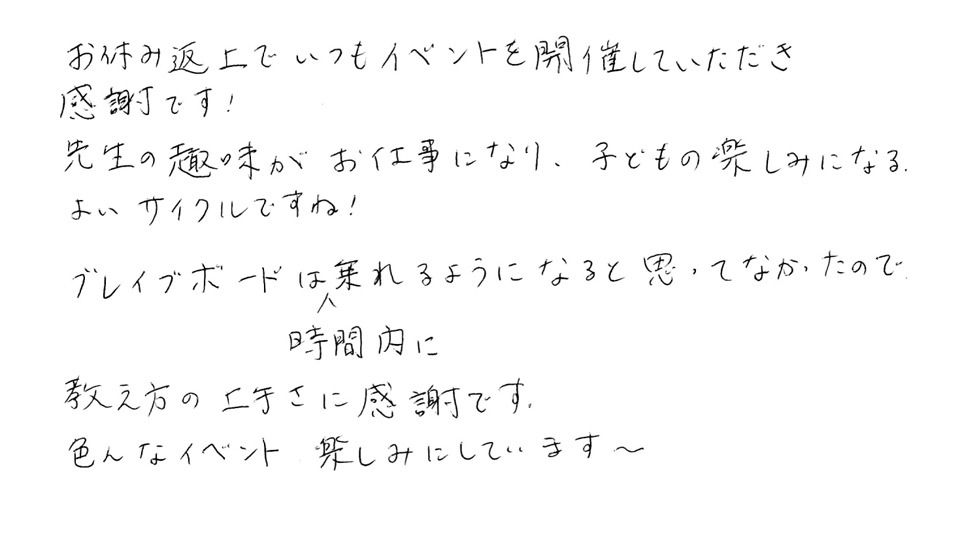 お休み返上でいつもイベントを開催していただき
感謝です!
先生の趣味がお仕事になり、子どもの楽しみになる.
よいサイクルですね!
ブレイブボードは乗れるようになると思ってなかったので
時間内に
教え方の上手さに感謝です.
色んなイベント 楽しみにしています～